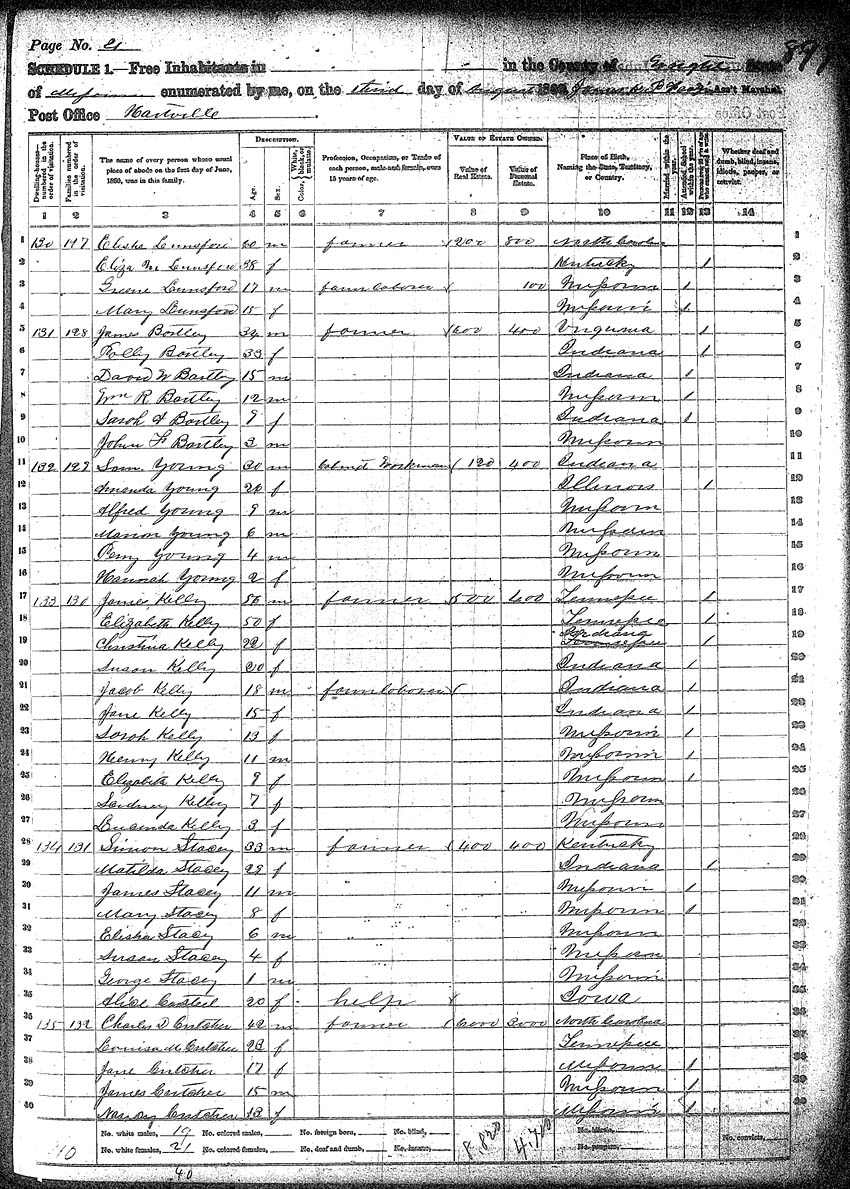 Page No. 21
SCHEDULE 1.—Free Inhabitants in in the County of Wright State
of Missouri enumerated by me, on the third day of August 1860. Ass't Marshal.
Post Office Hartville
DESCRIPTION. VALUE OF ESTATE OWNED.
Dwelling-houses—numbered in the order of visitation. Families numbered in the order of visitation. The name of every person whose usual place of abode on the first day of June, 1860, was in this family. Age. Sex. Color, White, black, or mulatto. Profession, Occupation, or Trade of each person, male and female, over 15 years of age. Value of Real Estate. Value of Personal Estate. Place of Birth, Naming the State, Territory, or Country. Married within the year. Attended School within the year. Whether deaf and dumb, blind, insane, idiotic, pauper, or convict.
1 2 3 4 5 6 7 8 9 10 11 12 13 14
1 130 127 Elisha Lunsford 60 m farmer 1200 800 North Carolina 1
2 Eliza M Lunsford 38 f Kentucky 1 2
3 Greene Lunsford 17 m farm laborer 100 Missouri 1 3
4 Mary Lunsford 15 f Missouri 1 4
5 131 128 James Bartley 34 m farmer 600 400 Virginia 1 5
6 Polly Bartley 33 f Indiana 1 6
7 David W Bartley 15 m Indiana 1 7
8 Wm R Bartley 12 m Missouri 1 8
9 Sarah A Bartley 9 f Indiana 1 9
10 John F Bartley 3 m Missouri 10
11 132 129 Sam Young 30 m Workman 120 400 Indiana 11
12 Amanda Young 26 f Illinois 1 12
13 Alfred Young 9 m Missouri 13
14 Marion Young 6 m Missouri 14
15 Perry Young 4 m Missouri 15
16 Hannah Young 2 f Missouri 16
17 133 130 James Kelly 56 m farmer 500 400 Tennessee 1 17
18 Elizabeth Kelly 50 f Tennessee 1 18
19 Christina Kelly 22 f Indiana Tennessee 1 19
20 Susan Kelly 20 f Indiana 1 20
21 Jacob Kelly 18 m farm laborer Indiana 1 21
22 Jane Kelly 15 f Indiana 1 22
23 Sarah Kelly 13 f Missouri 1 23
24 Henry Kelly 11 m Missouri 1 24
25 Elizabeth Kelly 9 f Missouri 1 25
26 Kelly 7 f Missouri 26
27 Lucinda Kelly 3 f Missouri 27
28 134 131 Simon Stacey 33 m farmer 400 400 Kentucky 28
29 Matilda Stacey 29 f Indiana 1 29
30 James Stacey 11 m Missouri 1 30
31 Mary Stacey 8 f Missouri 1 31
32 Elisha Stacey 6 m Missouri 32
33 Susan Stacey 4 f Missouri 33
34 George Stacey 1 m Missouri 34
35 Alice Casteel 20 f help Iowa 35
36 135 132 Charles D Cutcher 42 m farmer 6000 3000 North Carolina 36
37 Louisa M Cutcher 23 f Tennessee 37
38 Jane Cutcher 17 f Missouri 1 38
39 James Cutcher 15 m Missouri 1 39
40 Nancy Cutcher 13 f Missouri 1 40
No. white males, 19 No. colored males, No. foreign born, No. blind, 8,820 4,700 No. idiotic, No. convicts,
No. white females, 21 No. colored females, No. deaf and dumb, No. insane, No. paupers,
40